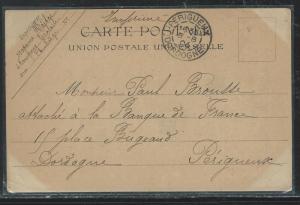 Imprimé
CARTE POSTALE
UNION POSTALE UNIVERSELLE
PÉRIGUEUX
DORDOGNE
Monsieur Paul Broustte
attaché à la Banque de France
15 place Bugeaud
Dordogne Périgueux